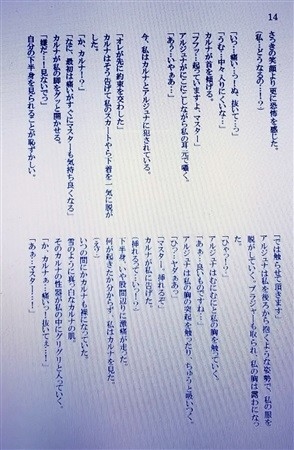 14
さっきの笑顔より更に恐怖を感じた。
(私…どうなるの…!?)
「いっ…痛い…うーぬ、抜いて…っ」
「うむ…中々、入りにくいな…」
カルナが首を傾げる。
「ふっ…起きていますよ、マスター」
アルジュナがにこにこしながら私の耳元で囁く。
「あうぅいやぁあ…」
今、私はカルナとアルジュナに犯されている。
「オレが先に約束を交わした」
カルナはそう告げて私のスカートやら下着を一気に脱が
した。
「か、カルナ…!?」
「なに、最初は痛いがすぐにマスターも気持ち良くなる」
カルナが私の脚をグッと開かせる。
「嫌だ…!見ないでっ」
自分の下半身を見られることが恥ずかしい。
「では触らせて頂きます」
アルジュナは私を後ろから抱くような姿勢で、私の服を
脱がしていく。ブラジャーも取られ、私の胸は露わになっ
「ひゃうー?」
アルジュナはむにむにと私の胸を触っていく。
「あぁ…良いものですね…」
アルジュナは私の胸の突起を触ったり、ちゅうと吸いつく。
「ひっ…ヤダぁあっ」
「マスター、挿れるぞ」
カルナが私に告げた。
(挿れるって…いーっ!)
下半身、いや股間辺りに激痛が走った。
何が起きたか分からず、私はカルナを見た。
(え?)
いつの間にかカルナも裸になっていた。
雪のように真っ白なカルナの肌。
そのカルナの性器が私の中にグリグリと入っていく。
「か、カルナぁ…痛い、っ!抜いてぇ…!」
「あぁ…マスター……!」